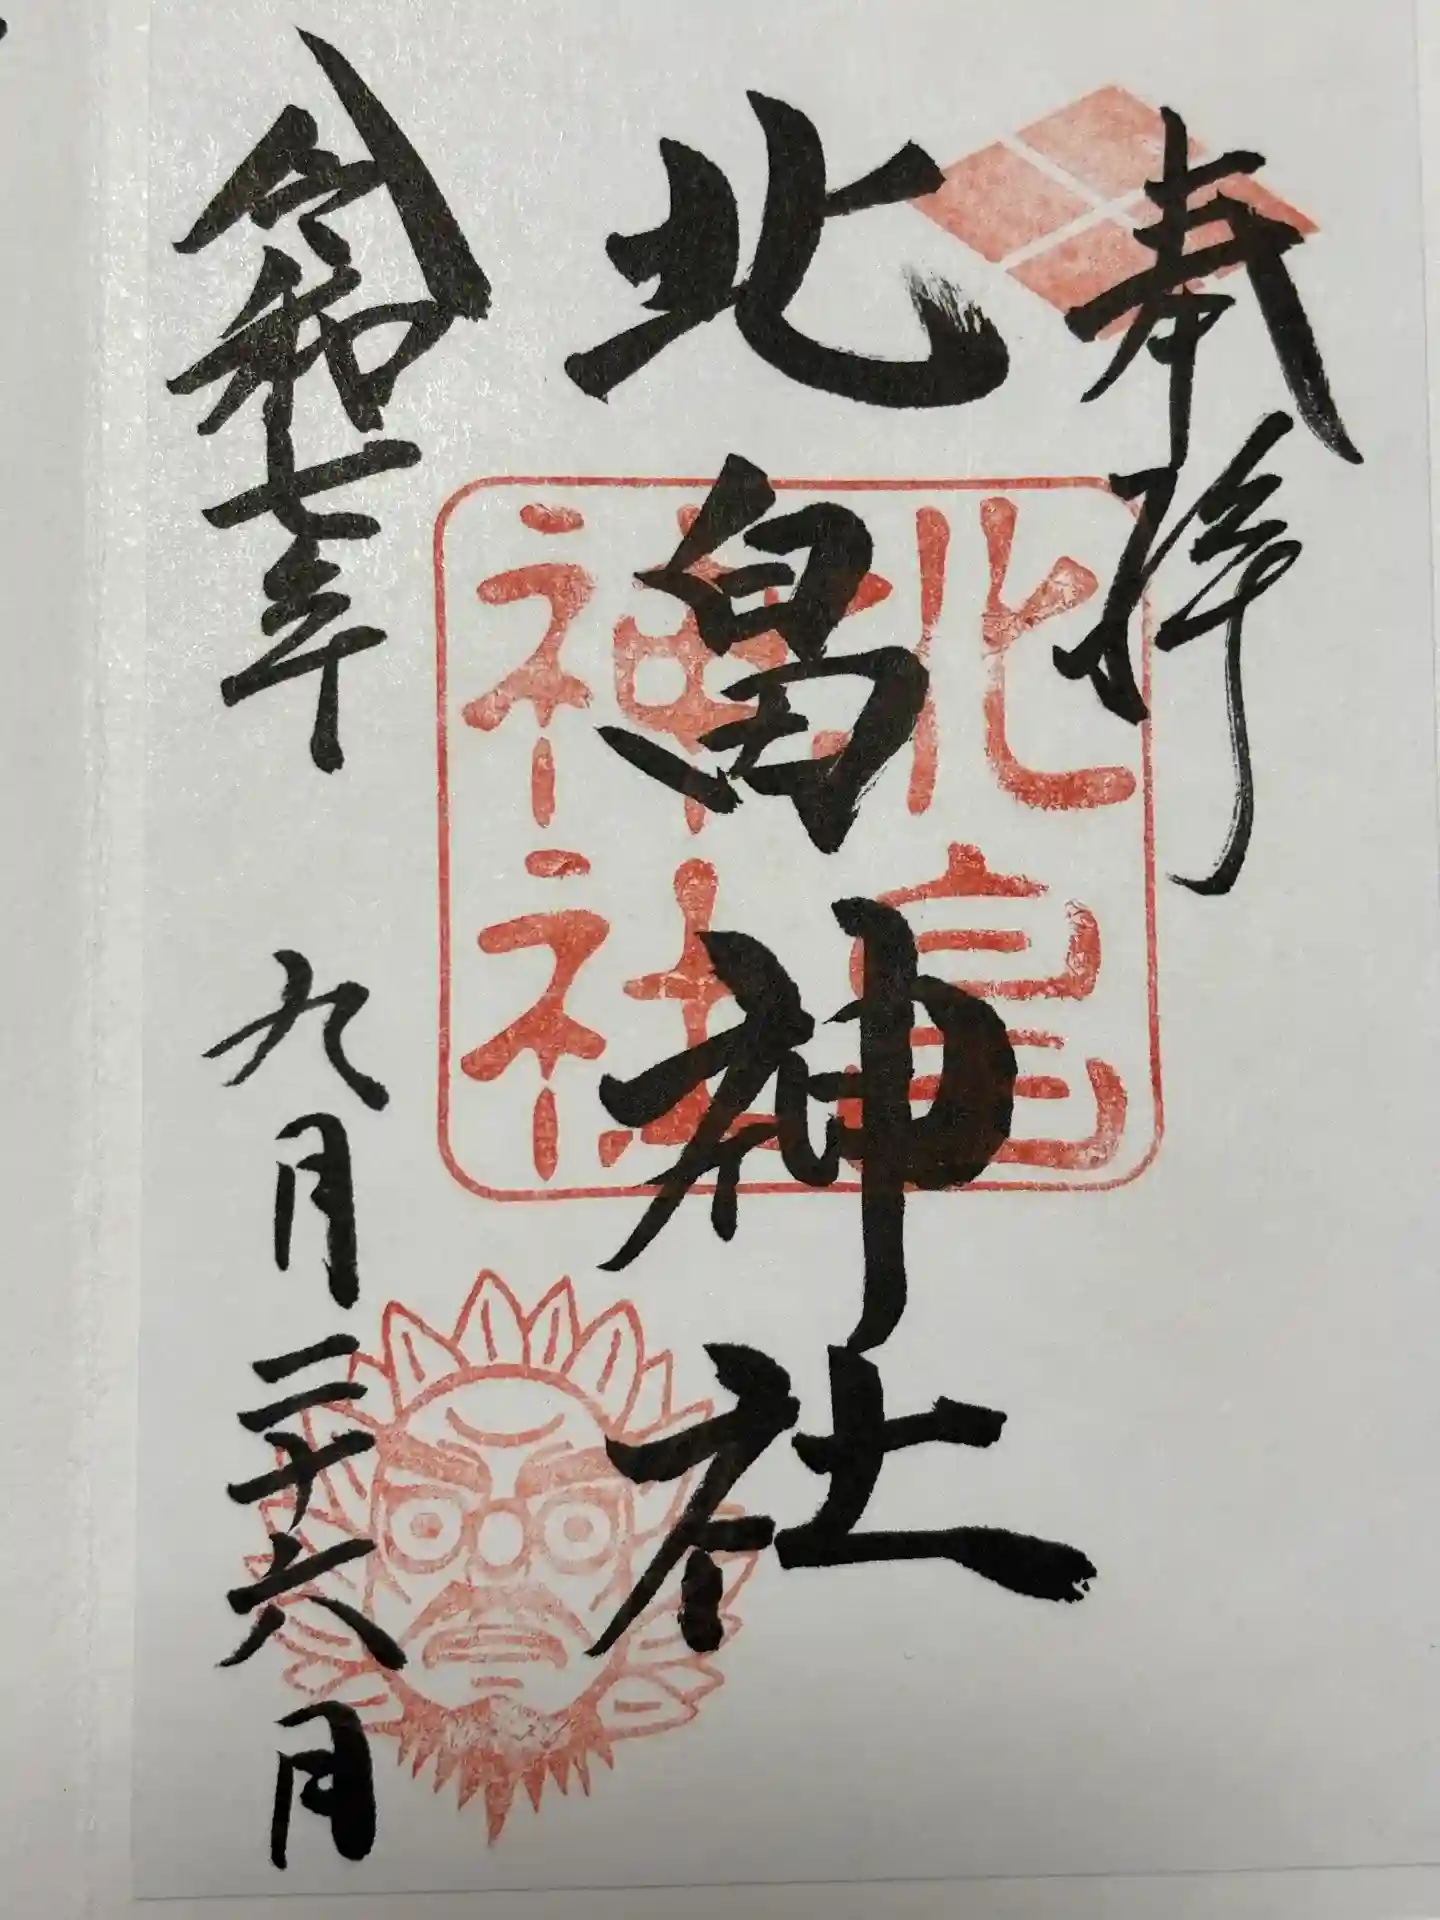 奉拝
北島神社
北島
神社
令和七年 九月二十六日